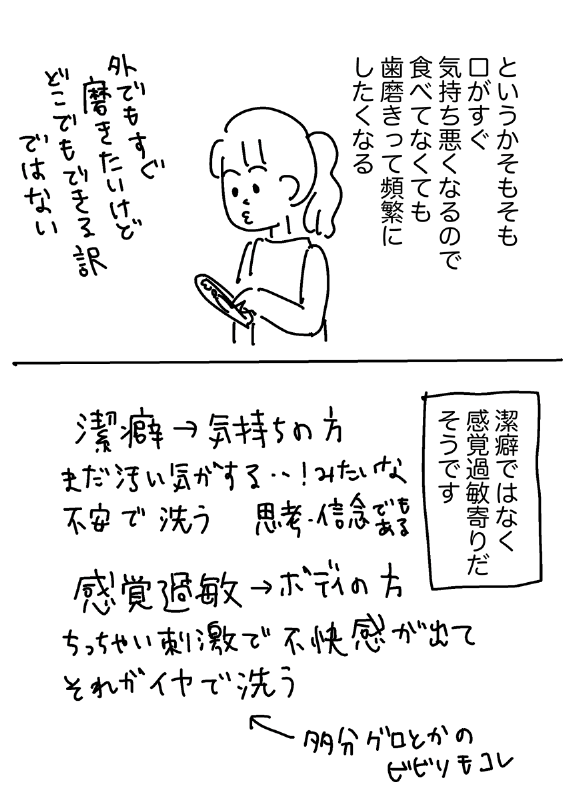 というかそもそも
口がすぐ
気持ち悪くなるので
食べてなくても
歯磨きって頻繁に
したくなる
外でもすぐ
磨きたいけど
どこでもできる訳
ではない
潔癖ではなく
感覚過敏寄りだ
そうです
潔癖→気持ちの方
まだ汚い気がする‥!みたいな
不安で洗う 思考・信念でもある
感覚過敏→ボディの方
ちっちゃい刺激で不快感が出て
それがイヤで洗う
多分グロとかの
ビビりもコレ